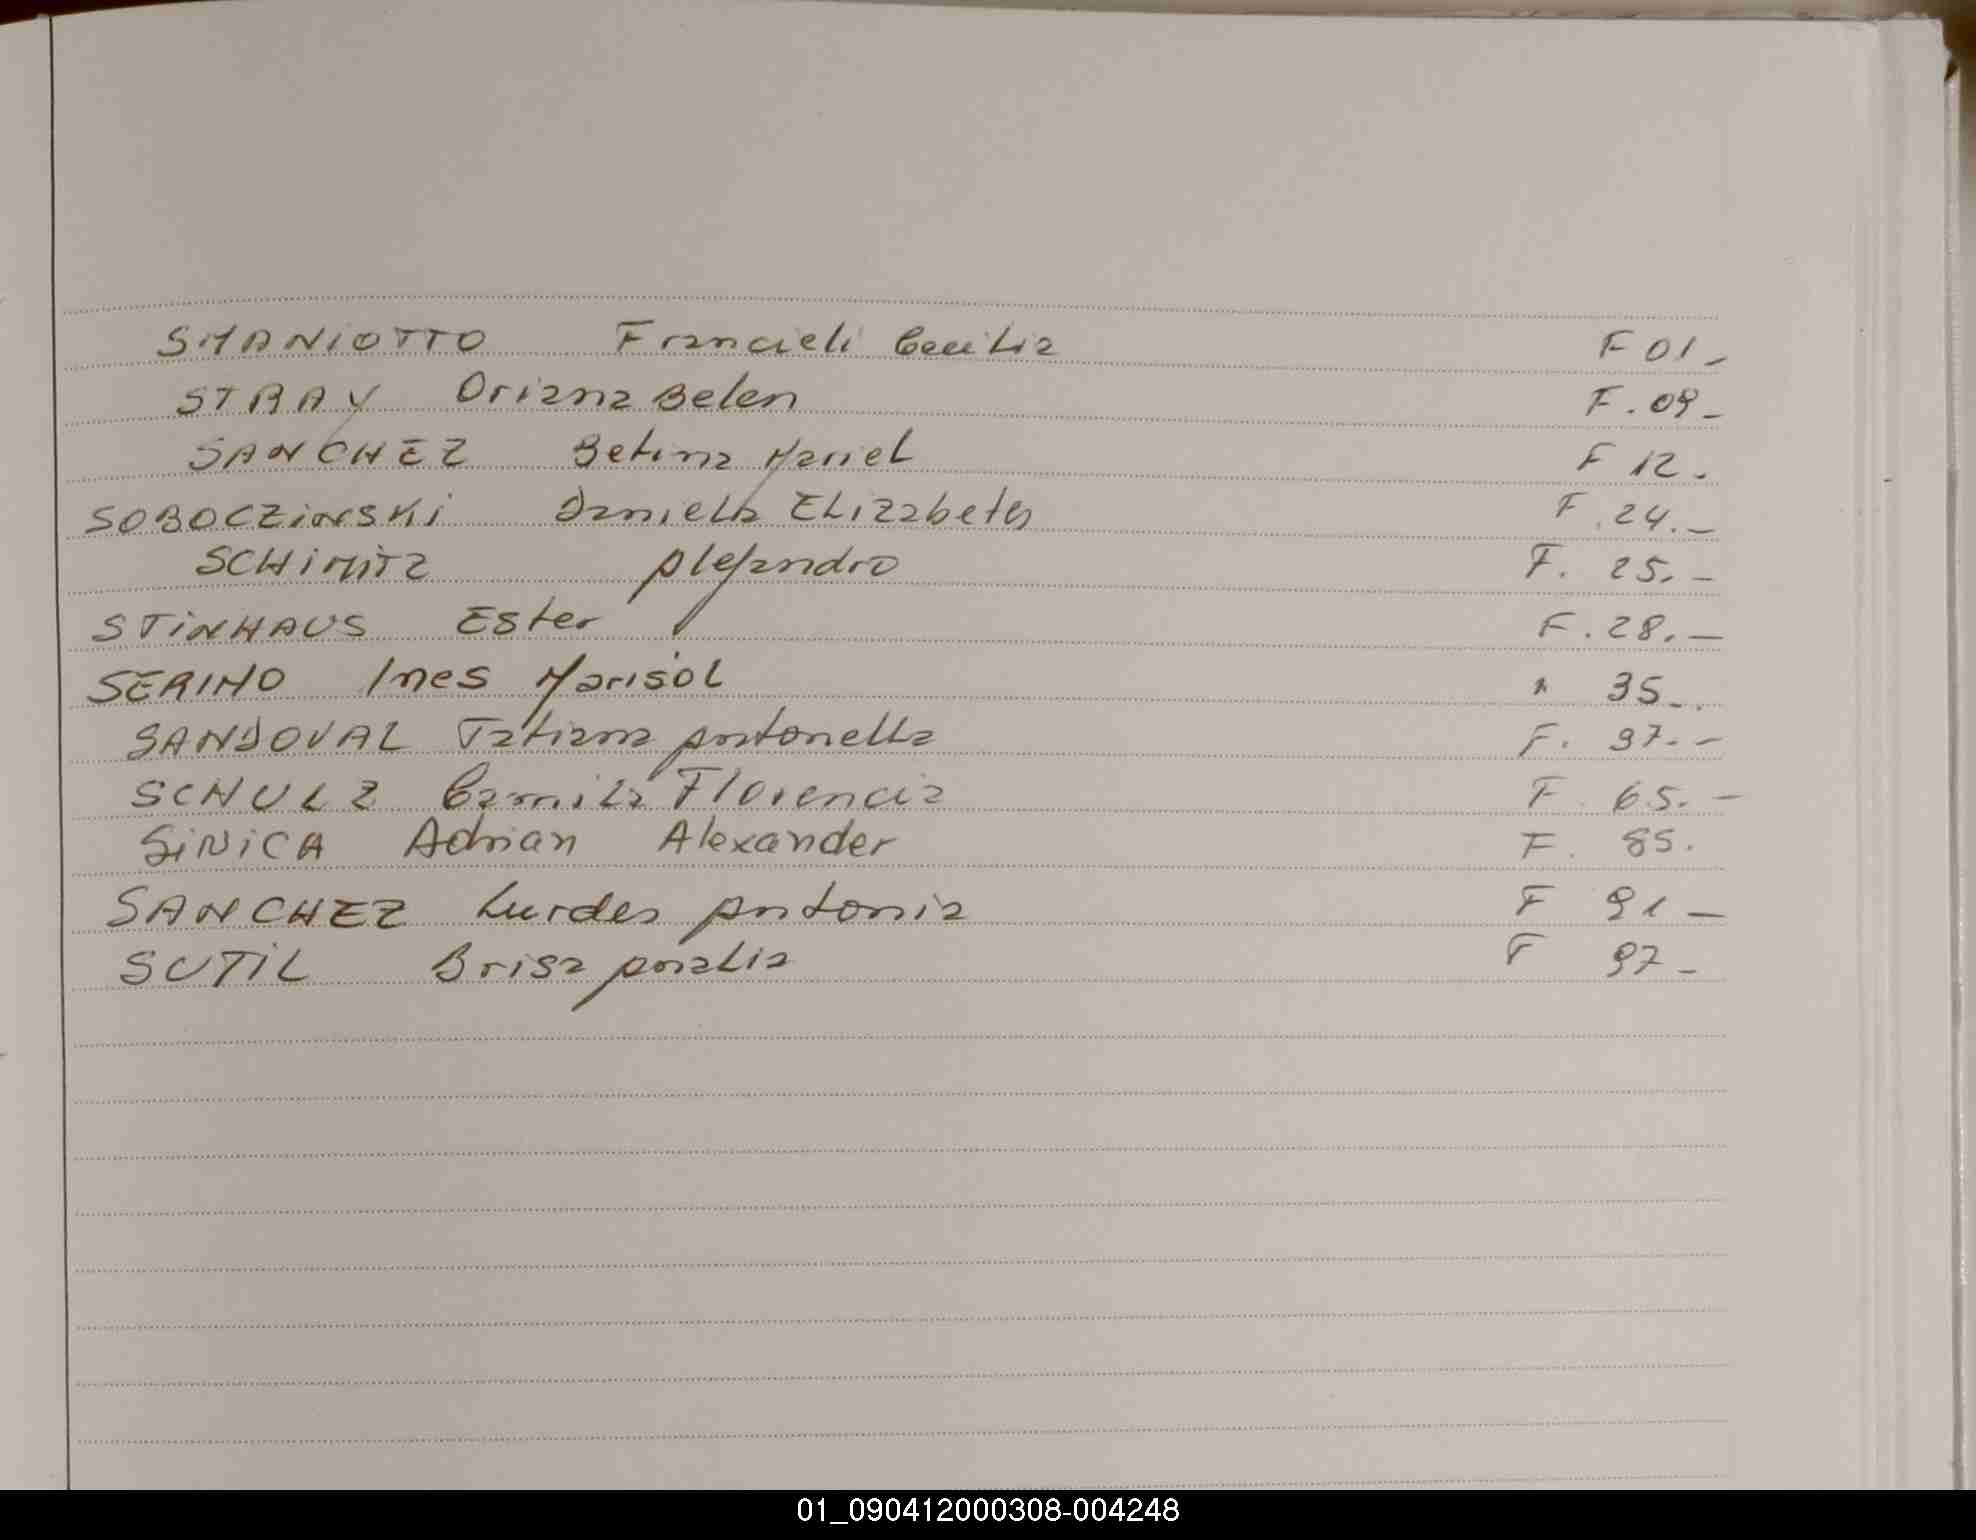 SMANIOTTO Francieli Cecilia F 01-
STRAY Oriana Belen F. 09-
SANCHEZ Betina Mariel F 12.
SOBOCZINSKI Daniela Elizabeth F. 24.-
SCHIMITZ Alejandro F. 25.-
STINHAUS Ester F. 28.-
SERINO Ines Marisol " 35-.
SANDOVAL Tatiana Antonella F. 37.-
SCHULZ Camila Florencia F. 65.-
SINICA Adrian Alexander F. 85.
SANCHEZ Lurdes Antonia F 91-
SUTIL Brisa Analia F 97-
01_090412000308-004248